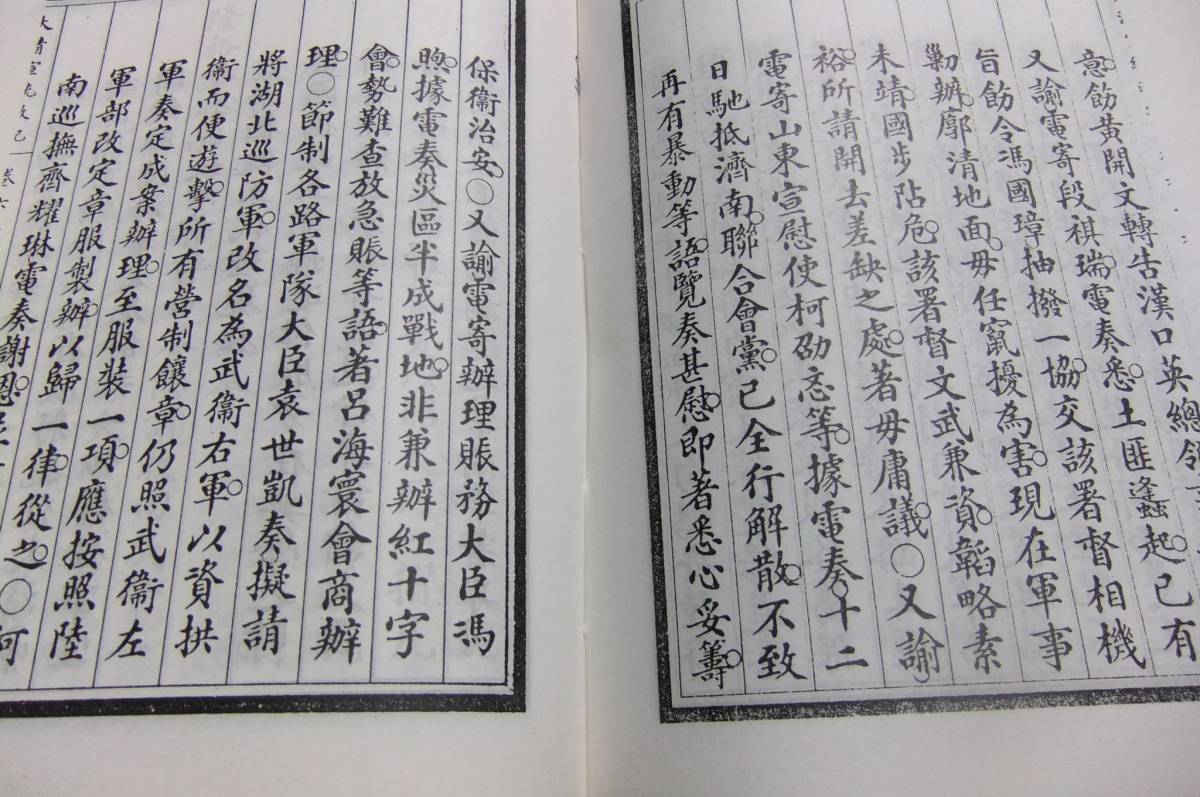 意。飭黃開文轉告漢口英總領
又諭。電寄段祺瑞電奏悉。土匪蠭起。已有
旨飭令馮國璋抽撥一協。交該署督相機
勦辦。廓清地面。毋任竄擾為害。現在軍事
未靖。國步阽危。該署督文武兼資。韜略素
裕。所請開去差缺之處。著毋庸議。○又諭。
電寄山東宣慰使柯劭忞等。據電奏。十二
日馳抵濟南。聯合會黨。已全行解散。不致
再有暴動等語。覽奏甚慰。即著悉心妥籌。
保衞治安。○又諭電寄辦理賑務大臣馮
煦。據電奏災區半成戰地。非兼辦紅十字
會。勢難查放急賑等語。著呂海寰會商辦
理。○節制各路軍隊大臣袁世凱奏擬請
將湖北巡防軍。改名為武衞右軍。以資拱
衞而便遊擊。所有營制饟章。仍照武衞左
軍奏定成案辦理。至服裝一項。應按照陸
軍部改定章服製辦。以歸一律。從之。○河
南巡撫齊耀琳電奏謝恩。
大清宣統政紀 卷六